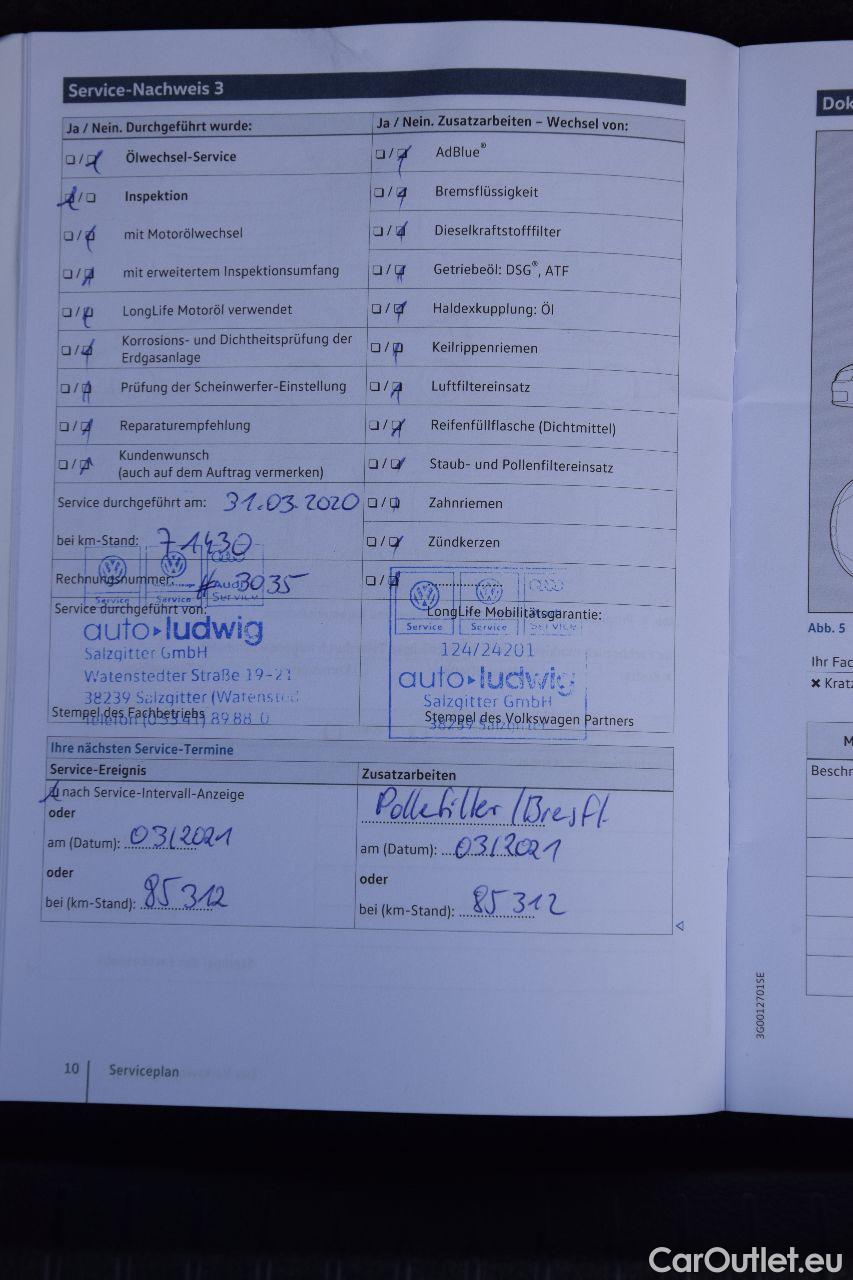 Service-Nachweis 3
Ja / Nein. Durchgeführt wurde:
Ölwechsel-Service
Inspektion
mit Motorölwechsel
mit erweitertem Inspektionsumfang
LongLife Motoröl verwendet
Korrosions- und Dichtheitsprüfung der
Erdgasanlage
Prüfung der Scheinwerfer-Einstellung
Reparaturempfehlung
Kundenwunsch
(auch auf dem Auftrag vermerken)
Service durchgeführt am: 31.03.2020
bei km-Stand: 71430
Rechnungsnummer: # 3035
Service durchgeführt von:
Service Service Service
auto ludwig
Salzgitter GmbH
Watenstedter Straße 19-21
38239 Salzgitter (Watensted
Telefon (05341) 89 88 0
Stempel des Fachbetriebs
Ja / Nein. Zusatzarbeiten – Wechsel von:
AdBlue®
Bremsflüssigkeit
Dieselkraftstofffilter
Getriebeöl: DSG®, ATF
Haldexkupplung: Öl
Keilrippenriemen
Luftfiltereinsatz
Reifenfüllflasche (Dichtmittel)
Staub- und Pollenfiltereinsatz
Zahnriemen
Zündkerzen
LongLife Mobilitätsgarantie:
Service Service
124/24201
auto ludwig
Salzgitter GmbH
38239 Salzgitter
Stempel des Volkswagen Partners
Ihre nächsten Service-Termine
Service-Ereignis
nach Service-Intervall-Anzeige
oder
am (Datum): 03/2021
oder
bei (km-Stand): 85 312
Zusatzarbeiten
am (Datum): 03/2021
oder
bei (km-Stand): 85 312
10 Serviceplan
3G0012701SE
Dok
Abb. 5
Ihr Fac
✖ Kratz
M
Beschr
CarOutlet.eu